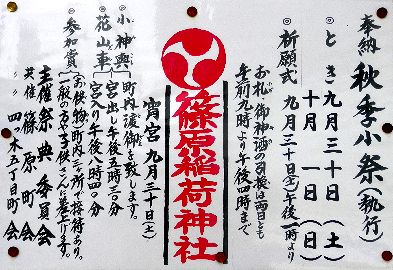 奉納 秋季小祭(執行)
◎とき 九月三十日(土)
十月一日(日)
◎祈願式 九月三十日(土)午後一時より
お札、御神酒の引換は両日とも
午前九時より午後四時まで
篠原稲荷神社
宵宮 九月三十日(土)
◎小神輿 町内渡御を致します。
◎花山車 宮出し午後五時三〇分
宮入り午後八時四〇分
◎参加賞 お供物、町内三ヶ所で接待あり。
一般の方や子供さんに差上ります。
主催 祭典委員会
共催 篠原町会
〃 四木五丁目町会